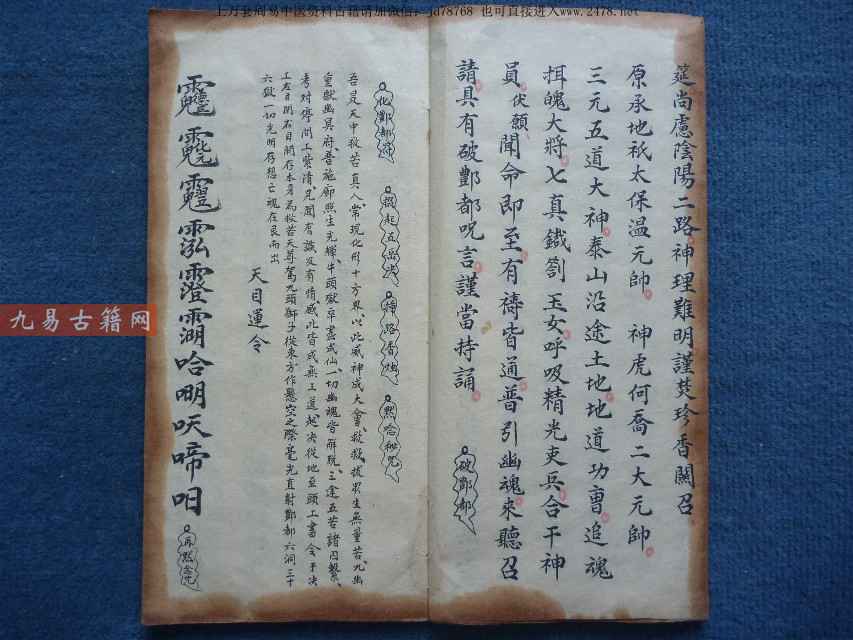 上万套周易中医资料古籍请加微信：jd78768 也可直接进入www.2478.net
筵尚慮陰陽二路神理難明謹焚珍香關召
原承地祇太保溫元帥 神虎何喬二大元帥
三元五道大神泰山沿途土地地道功曹追魂
挕魄大將七真鐵劄玉女呼吸精光吏兵合干神
員伏願聞命即至有禱皆通普引幽魂來聽召
請具有破酆都呪言謹當持誦
破酆都
化酆都符 掇起五岳决 掉路香烛 默哈秘咒
吾是天中救苦真人常現化形十方界以此威神成大會救救拔眾生無量苦九幽
皇獄幽冥府普施廓照生光輝牛頭獄卒盡成仙一切幽魂皆解脫三途五苦諸囚繫
考对停閉上紫清見聞者識及有情感此皆成無上道
工左日閉右目開存本身為救苦天尊駕九頭獅子從東方作懸空之際毫光直射酆都六洞三十
六獄一切光明存想亡魂在艮而出
天目運令
哈 呋啼呬
再默念咒
九易古籍网